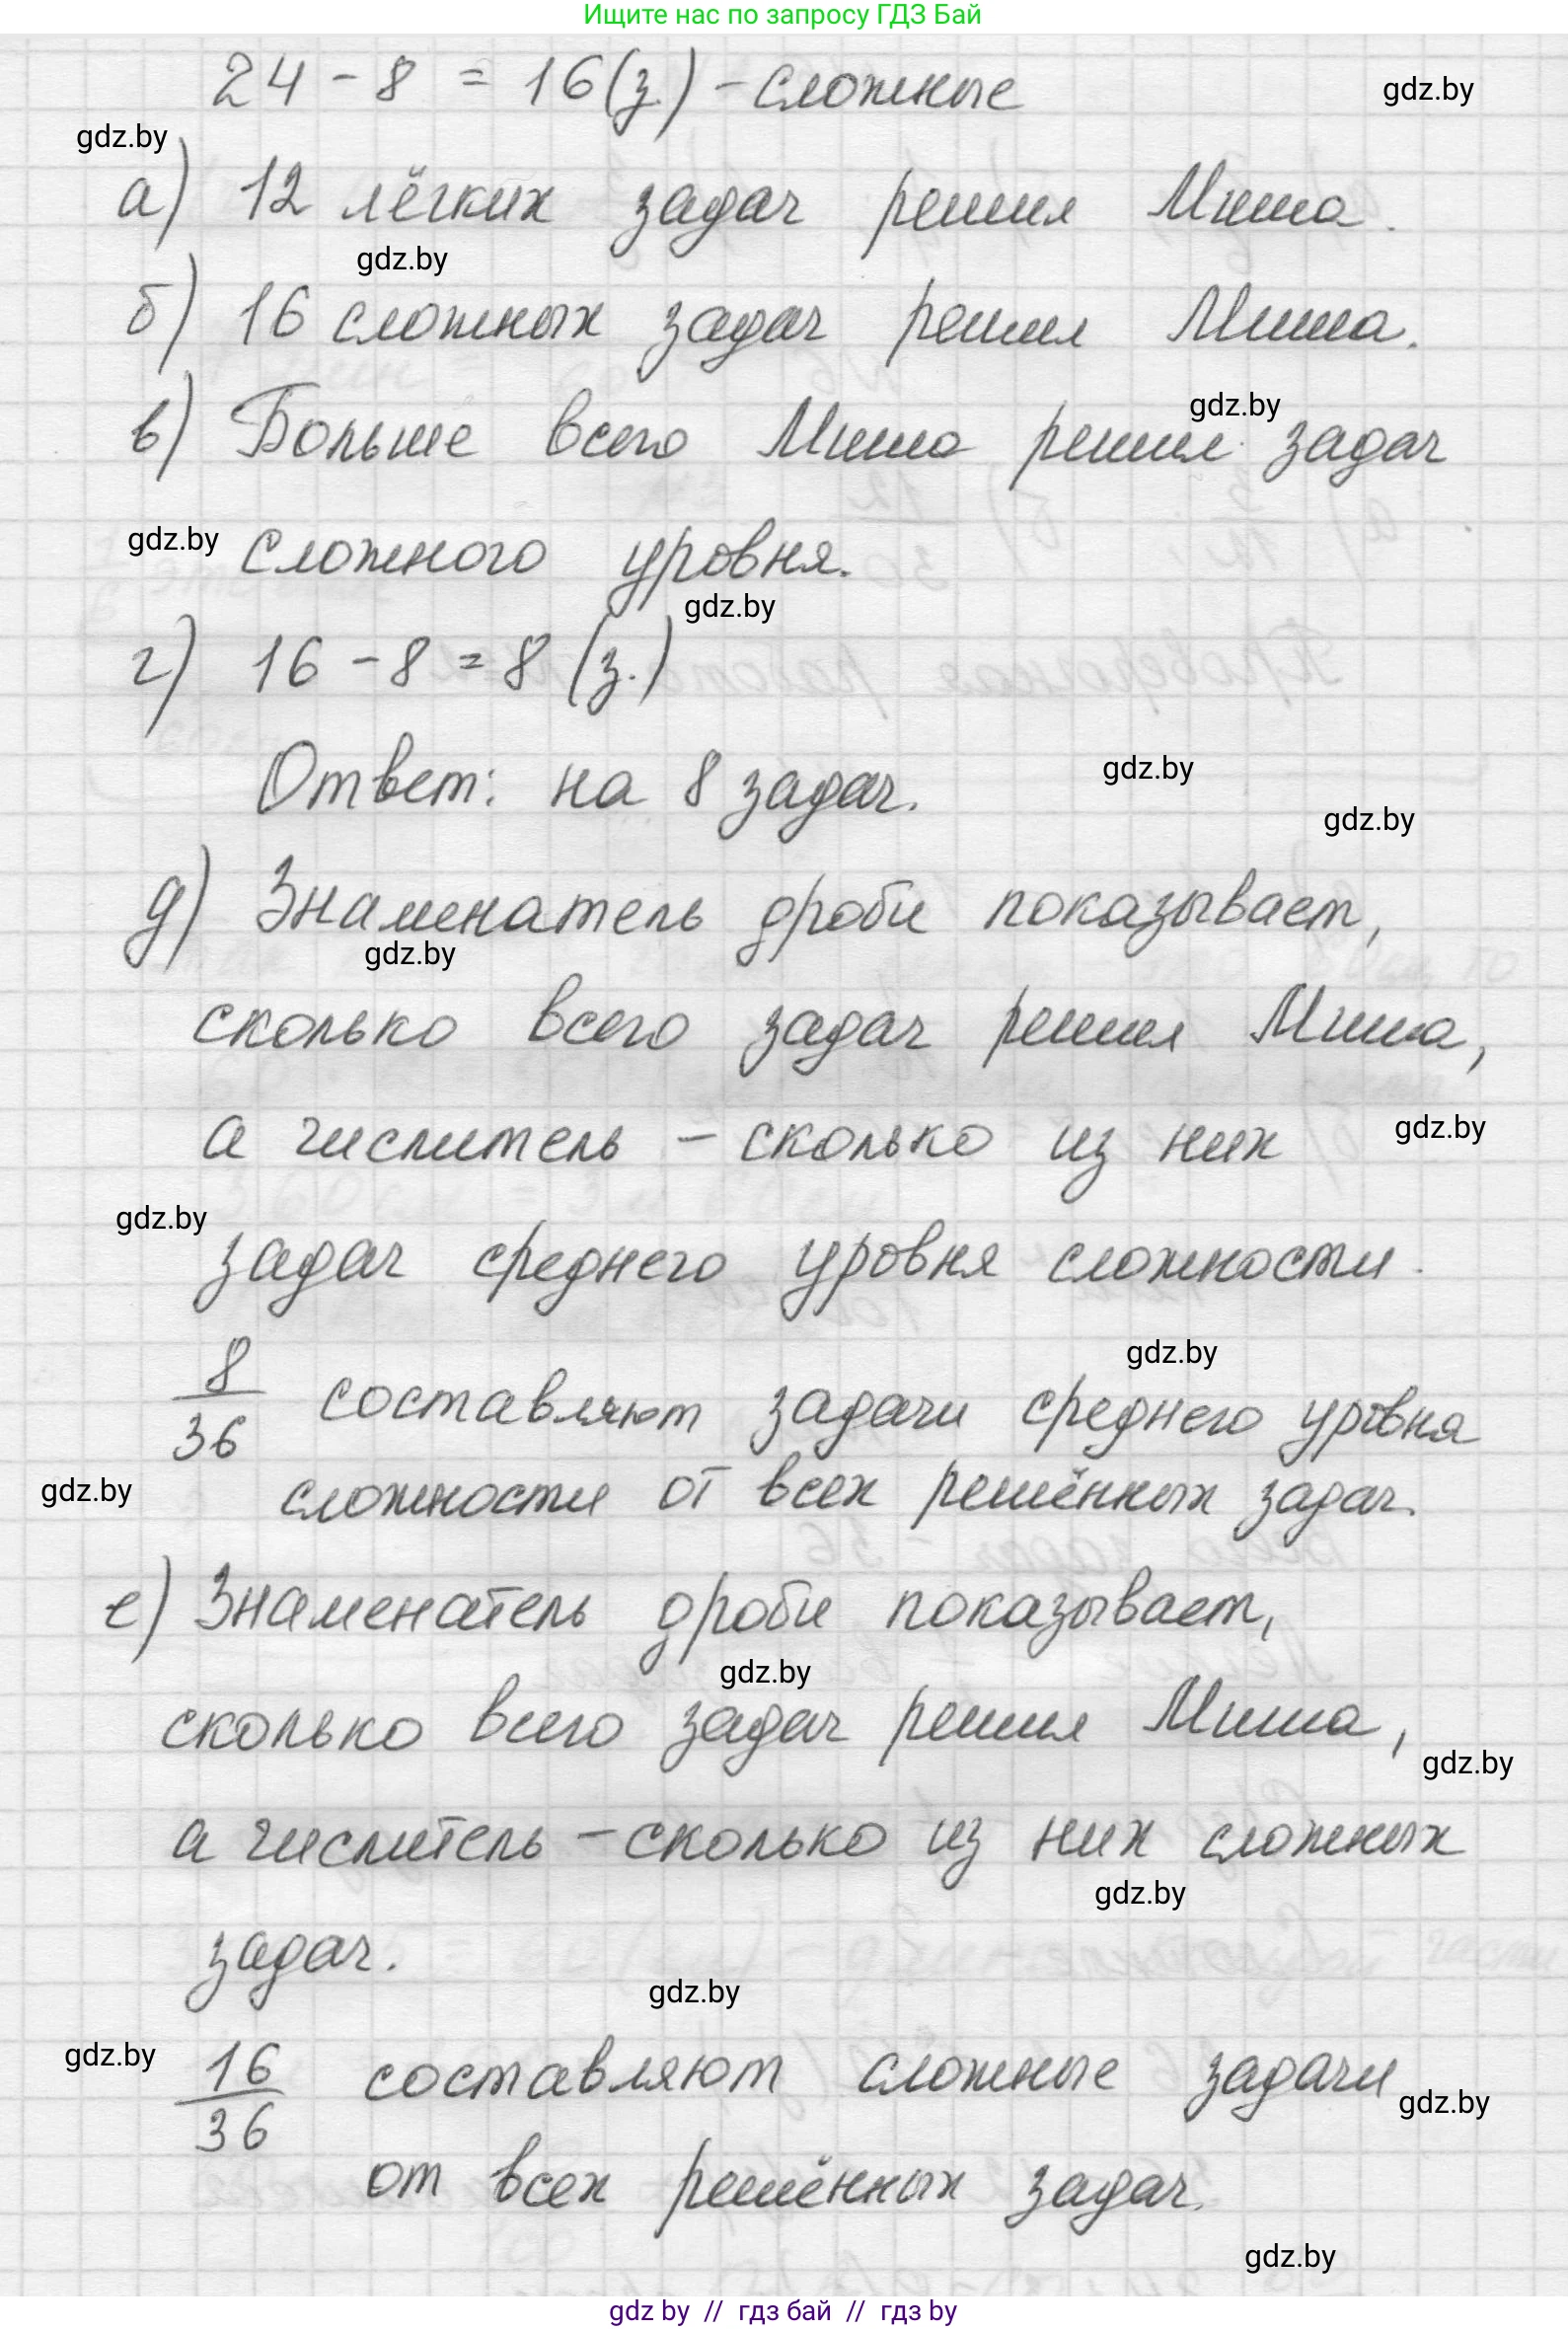 Ищите нас по запросу ГДЗ Бай
24 - 8 = 16 (з.) - сложные
gdz.by
gdz.by
а) 12 лёгких задач решил Миша.
gdz.by
б) 16 сложных задач решил Миша.
gdz.by
в) Больше всего Миша решил задач
gdz.by
сложного уровня.
gdz.by
г) 16 - 8 = 8 (з.)
Ответ: на 8 задач.
gdz.by
gdz.by
д) Знаменатель дроби показывает,
gdz.by
сколько всего задач решил Миша,
а числитель - сколько из них
gdz.by
gdz.by
задач среднего уровня сложности.
gdz.by
8/36 составляют задачи среднего уровня
gdz.by
сложности от всех решённых задач.
е) Знаменатель дроби показывает,
gdz.by
сколько всего задач решил Миша,
gdz.by
а числитель - сколько из них сложных
gdz.by
задач.
gdz.by
gdz.by
16/36 составляют сложные задачи
gdz.by
от всех решённых задач.
gdz.by
gdz by // гдз бай // гдз by